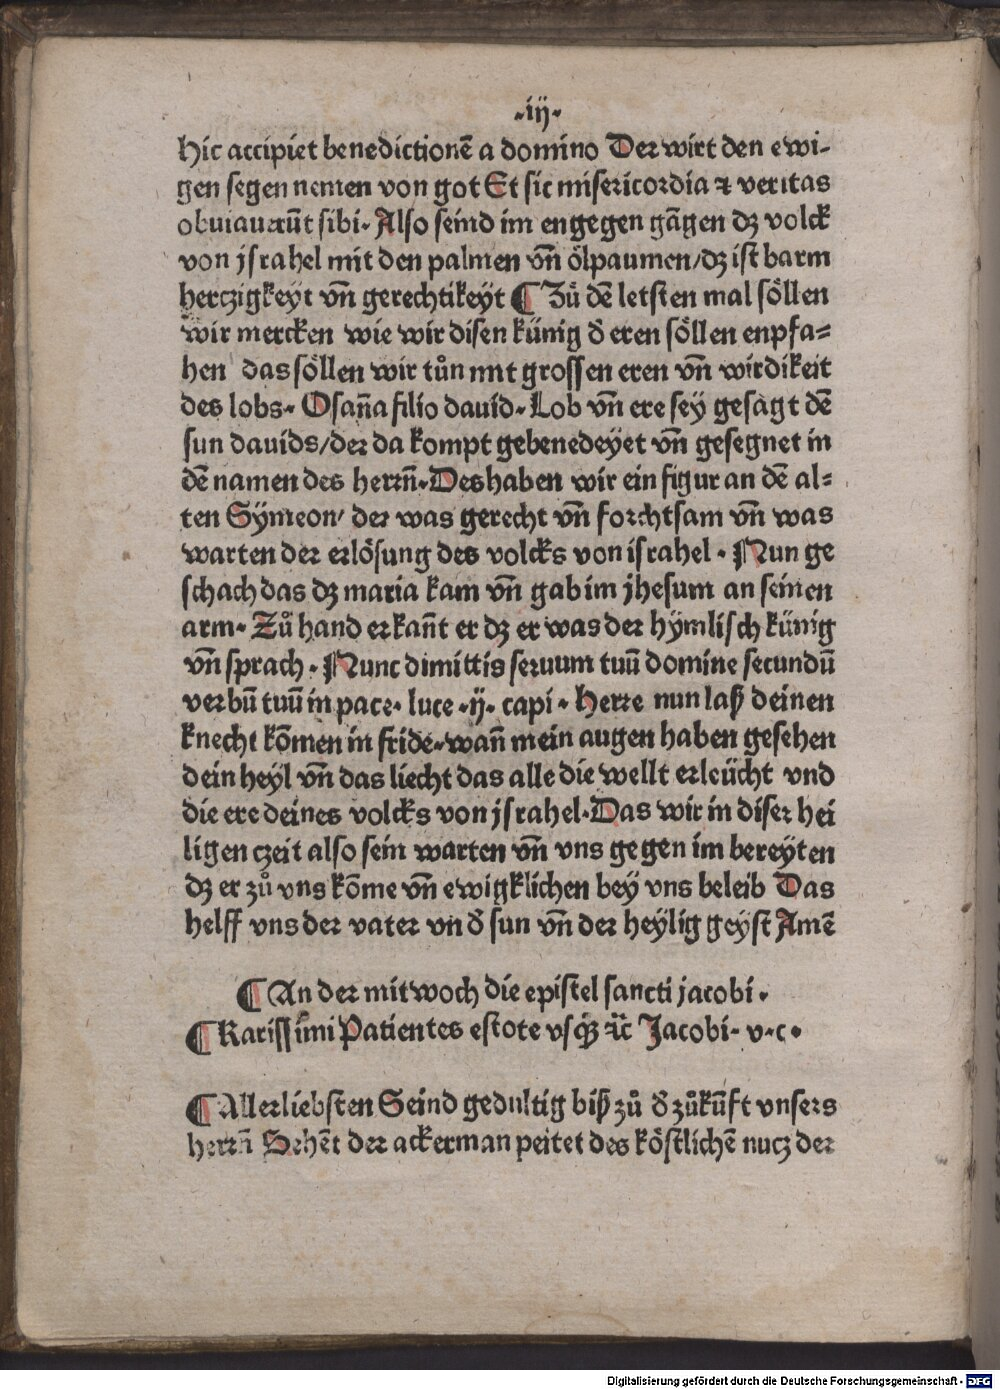 ·iij·
Hic accipiet benedictionē a domino Der wirt den ewi-
gen segen nemen von got Et sic misericordia ⁊ veritas
obuiauerūt sibi· Also seind im engegen gāgen dz volck
von jsrahel mit den palmen vn̄ ölpaumen/dz ist barm
herczigkeyt vn̄ gerechtikeyt ¶ Zů dē letsten mal söllen
wir mercken wie wir disen künig d̄ eren söllen enpfa=
hen das söllen wir tůn mit grossen eren vn̄ wirdikeit
des lobs· Osan̄a filio dauid· Lob vn̄ ere sey gesagt dē
sun dauids/der da kompt gebenedeyet vn̄ gesegnet in
dē namen des herrn̄· Des haben wir ein figur an dē al=
ten Sÿmeon/ der was gerecht vn̄ forchtsam vn̄ was
warten der erlösung des volcks von israhel· Nun ge
schach das dz maria kam vn̄ gab im jhesum an seinen
arm· Zů hand erkan̄t er dz er was der hÿmlisch künig
vn̄ sprach· Nunc dimittis seruum tuū domine secundū
verbū tuū in pace· luce ·ij· capi· Herre nun laß deinen
knecht kōmen in fride·wan̄ mein augen haben gesehen
dein heyl vn̄ das liecht das alle die wellt erleücht vnd
die ere deines volcks von jsrahel·Das wir in diser hei
ligen czeit also sein warten vn̄ vns gegen im bereyten
dz er zů vns kōme vn̄ ewigklichen beÿ vns beleib Das
helff vns der vater vn d̄ sun vn̄ der heÿlig geyst Amē
¶ An der mitwoch die epistel sancti jacobi·
¶ Karissimi Patientes estote vsqꝫ ⁊c̄ Jacobi· v·c·
¶ Allerliebsten Seind gedultig biß zů d̄ zůkūft vnsers
herrn̄ Sehēt der ackerman peitet des köstlichē nucz der
Digitalisierung gefördert durch die Deutsche Forschungsgemeinschaft - DFG